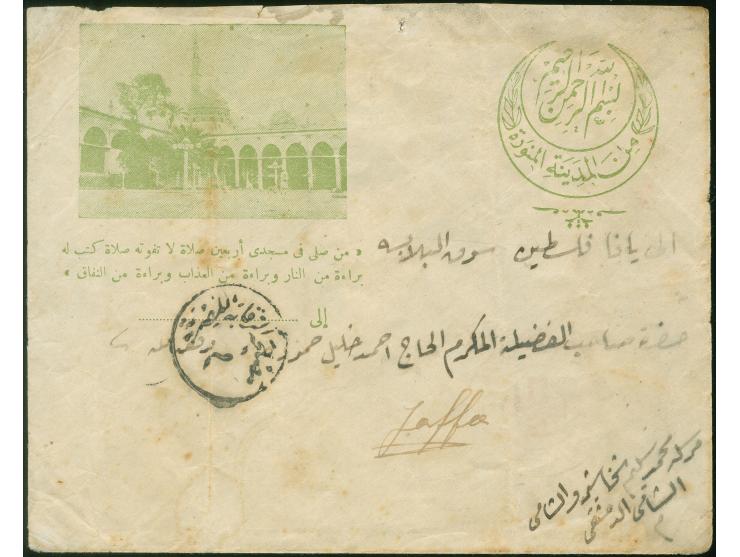 بسم الله الرحمن الرحيم
من المدينة المنورة
« من صلى فى مسجدى أربعين صلاة لا تفوته صلاة كتب له
براءة من النار وبراءة من العذاب وبراءة من النفاق »
الى يافا فلسطين سوق البلابسه
إلى
حضرة صاحب الفضيلة المكرم الحاج احمد خليل حمزه
Jaffa
محمد سليم
الشامى الدمشقى